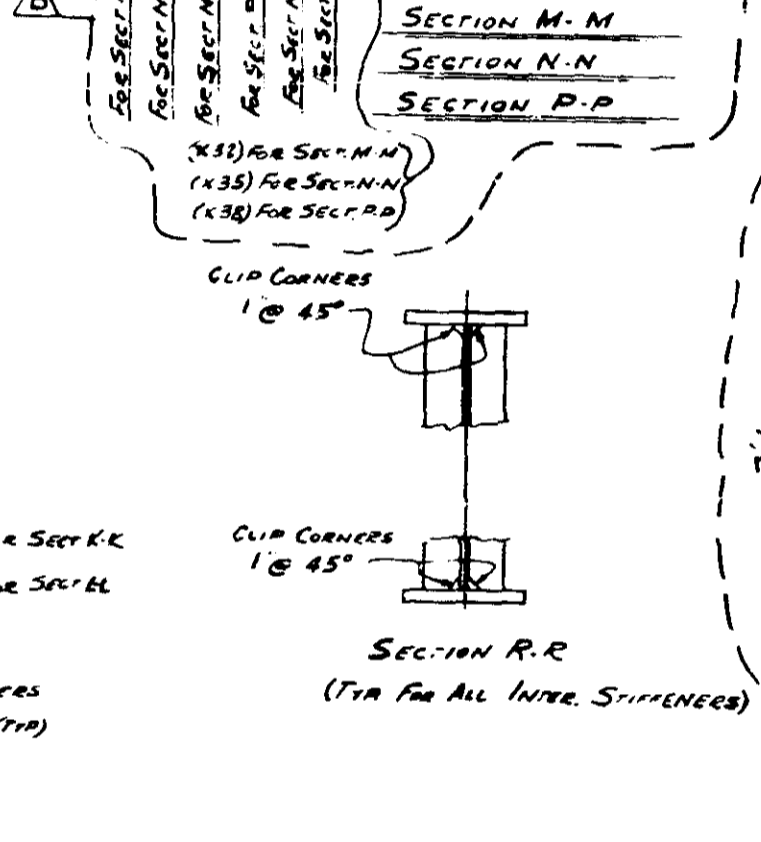 D
FOR SECT
FOR SECT N
FOR SECT N
FOR SECT
FOR SECT
FOR SECT
SECTION M-M
SECTION N-N
SECTION P-P
(X32) FOR SECT. M-M
(X35) FOR SECT. N-N
(X38) FOR SECT. P.P
CLIP CORNERS
1" @ 45°
R SECT K-K
CLIP CORNERS
1" @ 45°
SECT
SECTION R-R
(TYP FOR ALL INTER. STIFFENERS)
ERS
(TYP)